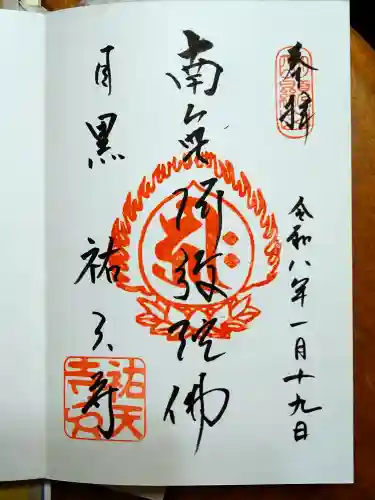 奉拝
令和八年一月十九日
南無阿弥陀佛
目黒 祐天寺
祐天
寺